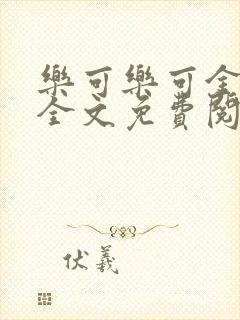 樂可樂可全
全文免費閱
伏羲